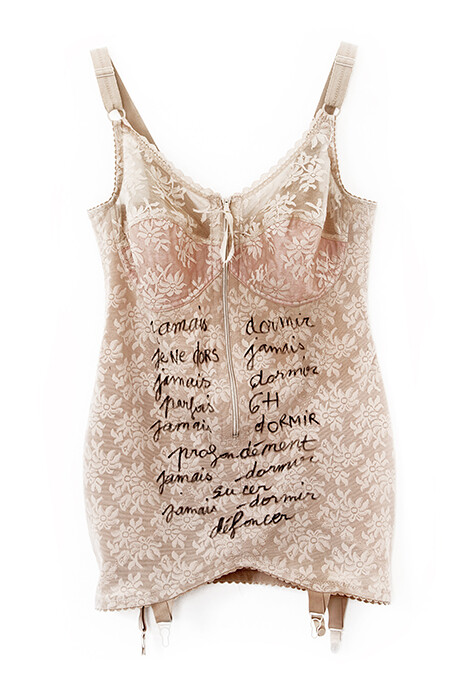 jamais dormir
je NE DORS jamais
jamais dormir
parfois 6H
jamais DORMIR
profondément
jamais - dormir
sucer
jamais - dormir
défoncer